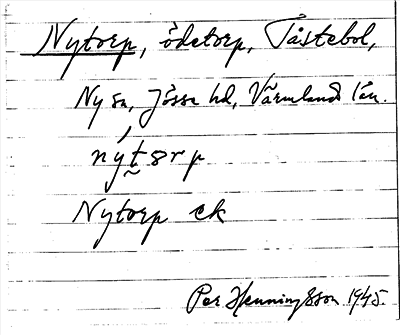 Nytorp, ödetorp, Tåstebol,
Ny sn, Jösse hd, Värmlands län.
nýtorp
Nytorp ek
Per Henningsson 1945.